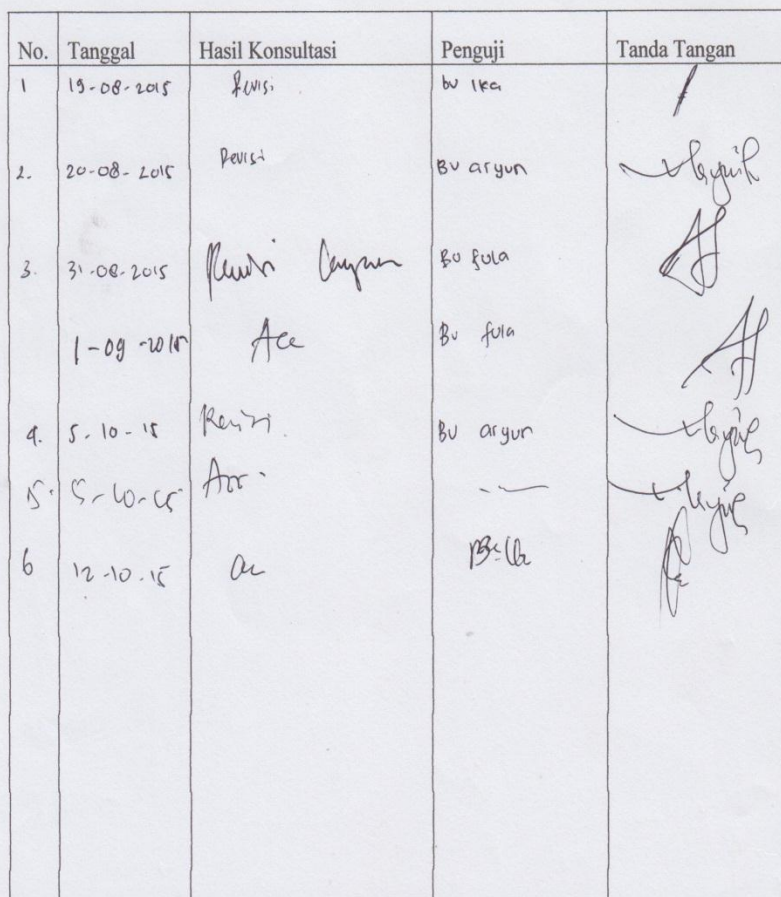 No. Tanggal Hasil Konsultasi Penguji Tanda Tangan
1 19-08-2015 Revisi bu Ika
2. 20-08-2015 Revisi Bu aryun
3. 31-08-2015 Revisi Bu fula
1-09-2015 Acc Bu fula
4. 5-10-15 Revisi Bu aryun
5. 5-10-15 Acc
6 12-10-15 acc